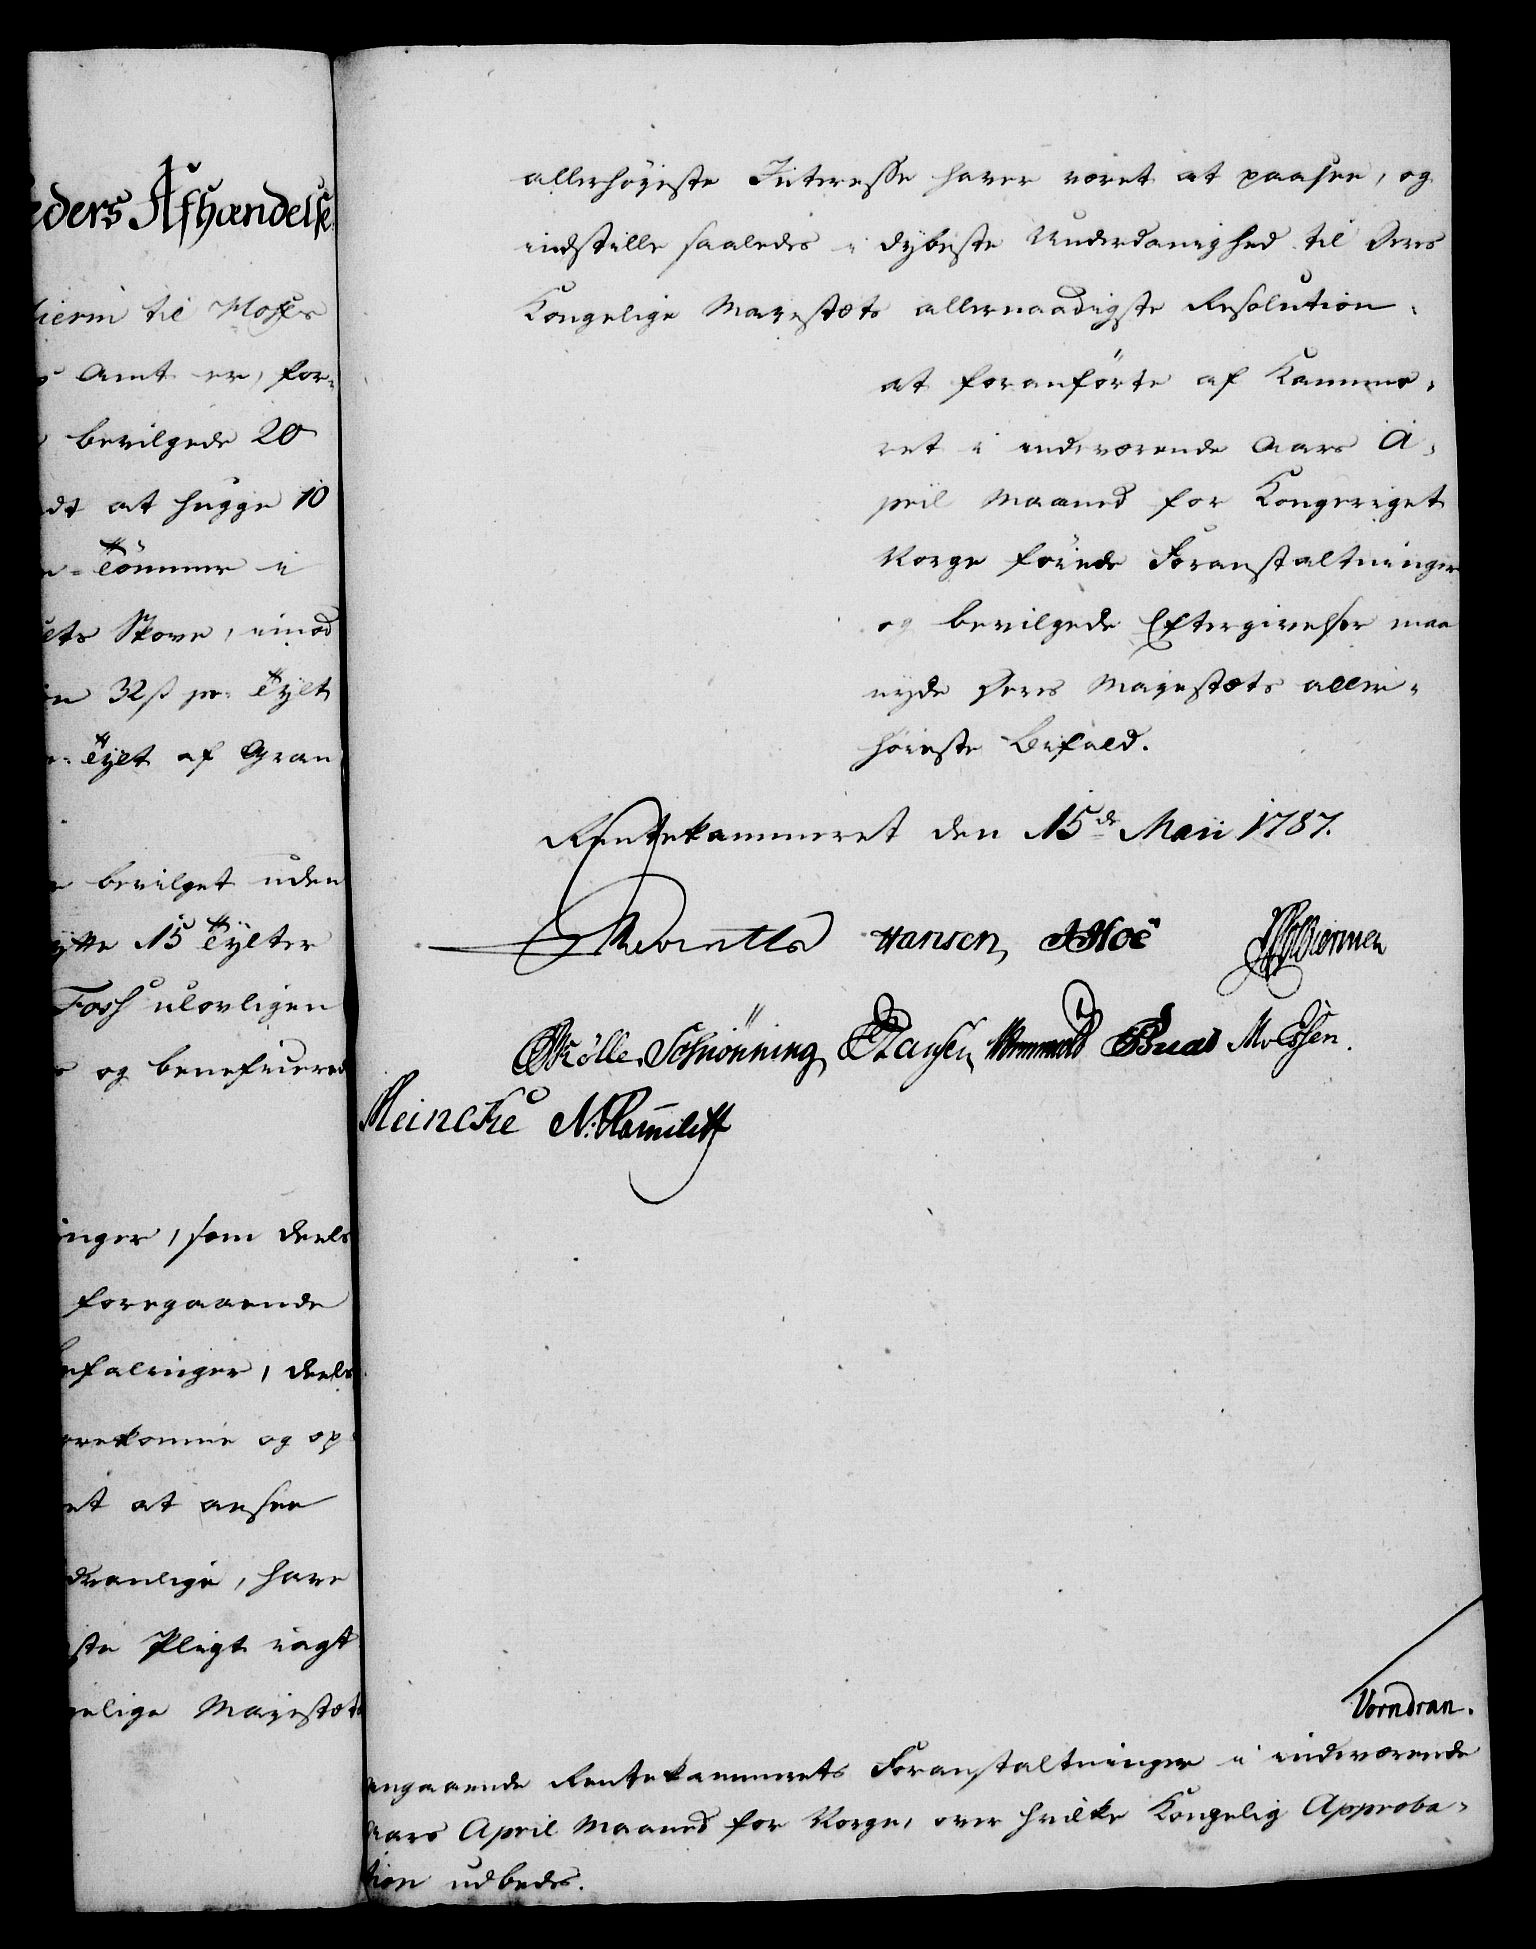 eders Afhændelse.
til Mosse
Amt er, for-
bevilgede 20
at hugge 10
Tömmer i
Skove, imod
32 ß pr: Tylt
Tylt af Gran
bevilget uden
15 Tylter
Foss ulovligen
og beneficered
inger, som deels
foregaaende
befalinger, deels
og op
at ansee
have
ste Pligt iagt
gelige Mayestæts
allerhöyeste Interesse haver været at paasee, og
indstille saaledes i dybeste Underdanighed til Deres
Kongelige Mayestæts allernaadigste Resolution:
at foranförte af Kamme-
ret i indeværende Aars A-
pril Maaned for Kongeriget
Norge föiede Foranstaltninger
og bevilgede Eftergivelser maa
nyde Deres Mayestæts aller-
höieste Bifald.
Rentekammeret den 15de Maii 1787.
Reventlo Hansen, Hoë
Rölle. Schiönning, Hansen, MvEssen.
Meincke N:
Vorndran.
angaaende Rentekammerets Foranstaltninger i indeværende
Aars April Maaned for Norge, over hvilke Kongelig Approba-
tion udbedes.